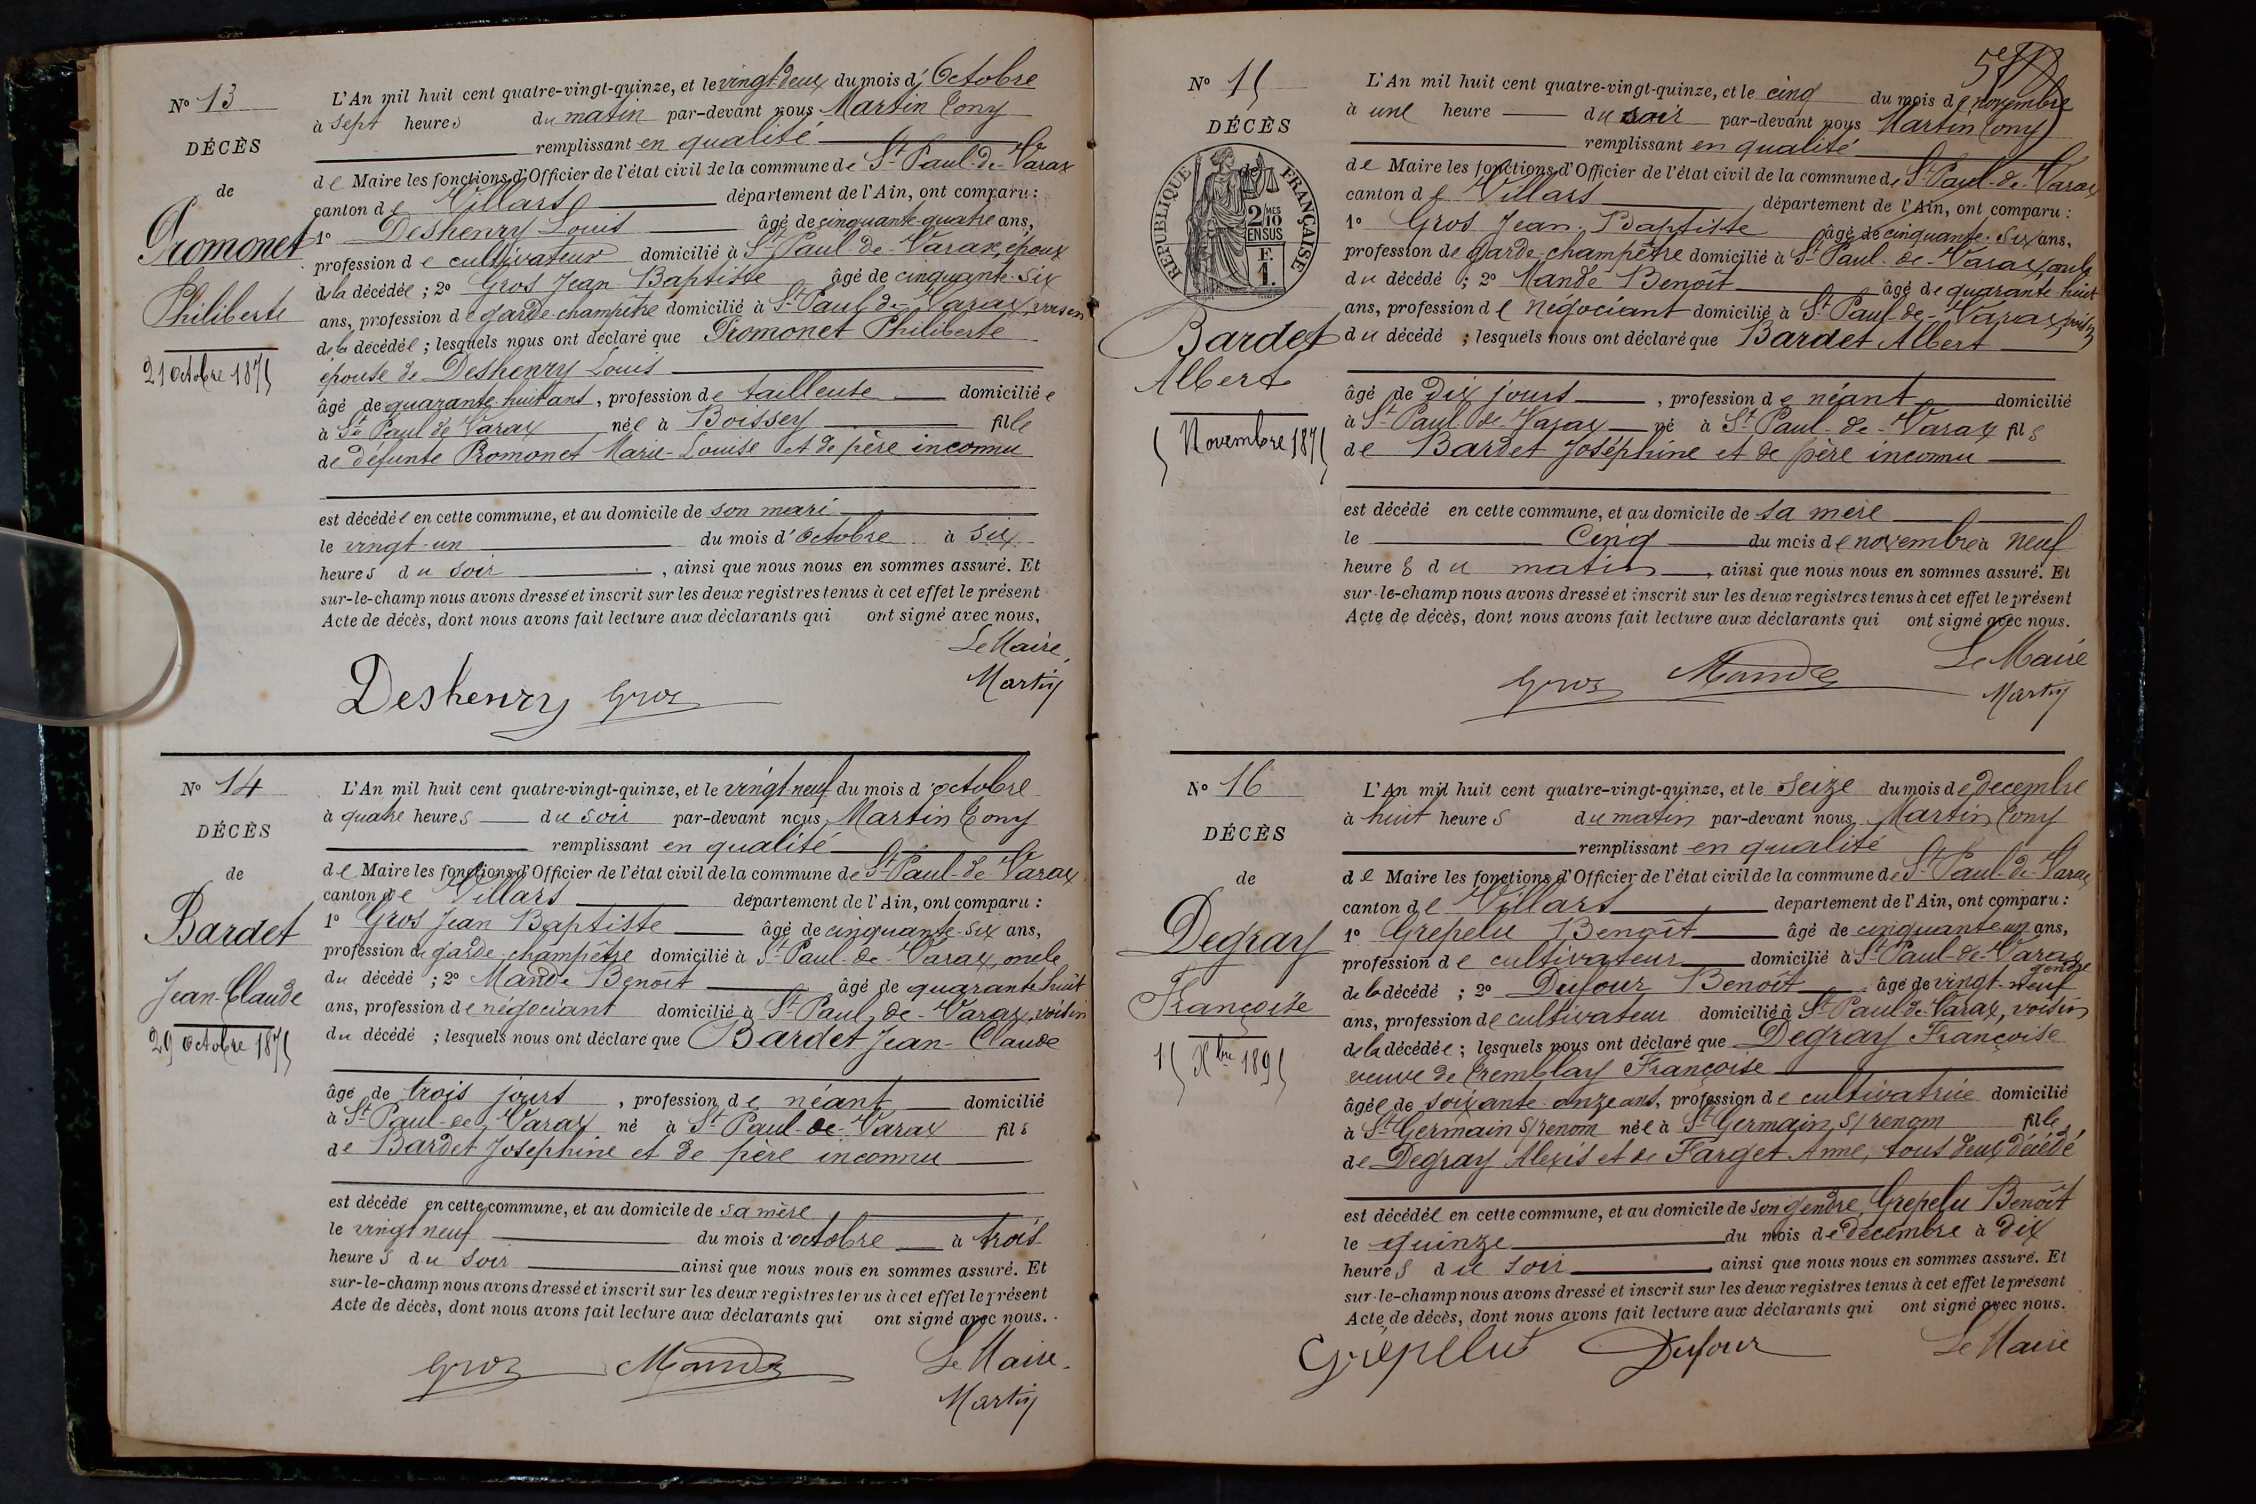 N° 13
DÉCÈS
de
Promonet
Philiberte
21 Octobre 1895
L'An mil huit cent quatre-vingt-quinze, et le vingt-deux du mois d'Octobre
à sept heures du matin par-devant nous Martin Tony
remplissant en qualité
de Maire les fonctions d'Officier de l'état civil de la commune de St Paul-de-Varax
canton de Villars département de l'Ain, ont comparu :
1° Deshenry Louis âgé de cinquante-quatre ans,
profession de cultivateur domicilié à St Paul-de-Varax, époux
de la décédée ; 2° Gros Jean Baptiste âgé de cinquante-six
ans, profession de garde-champêtre domicilié à St Paul-de-Varax, voisin
de la décédée ; lesquels nous ont déclaré que Promonet Philiberte
épouse de Deshenry Louis
âgé de quarante-huit ans, profession de tailleuse domiciliée
à St Paul de Varax née à Boissey fille
de défunte Promonet Marie-Louise et de père inconnu
est décédée en cette commune, et au domicile de son mari
le vingt-un du mois d'Octobre à six
heures du soir, ainsi que nous nous en sommes assuré. Et
sur-le-champ nous avons dressé et inscrit sur les deux registres tenus à cet effet le présent
Acte de décès, dont nous avons fait lecture aux déclarants qui ont signé avec nous.
Le Maire,
Deshenry Gros Martin
N° 14
DÉCÈS
de
Bardet
Jean-Claude
29 Octobre 1895
L'An mil huit cent quatre-vingt-quinze, et le vingt neuf du mois d'octobre
à quatre heures du soir par-devant nous Martin Tony
remplissant en qualité
de Maire les fonctions d'Officier de l'état civil de la commune de St Paul-de-Varax
canton de Villars département de l'Ain, ont comparu :
1° Gros Jean Baptiste âgé de cinquante-six ans,
profession de garde champêtre domicilié à St Paul-de-Varax, oncle
du décédé ; 2° Mande Benoît âgé de quarante huit
ans, profession de négociant domicilié à St Paul-de-Varax, voisin
du décédé ; lesquels nous ont déclaré que Bardet Jean-Claude
âgé de trois jours, profession de néant domicilié
à St Paul-de-Varax né à St Paul-de-Varax fils
de Bardet Josephine et de père inconnu
est décédé en cette commune, et au domicile de sa mère
le vingt neuf du mois d'octobre à trois
heures du soir ainsi que nous nous en sommes assuré. Et
sur-le-champ nous avons dressé et inscrit sur les deux registres tenus à cet effet le présent
Acte de décès, dont nous avons fait lecture aux déclarants qui ont signé avec nous.
Gros Mande Le Maire
Martin
57
N° 15
DÉCÈS
de
RÉPUBLIQUE FRANÇAISE
2/10 MES EN SUS
F. 1.
Bardet
Albert
5 Novembre 1895
L'An mil huit cent quatre-vingt-quinze, et le cinq du mois de novembre
à une heure du soir par-devant nous Martin Tony
remplissant en qualité
de Maire les fonctions d'Officier de l'état civil de la commune de St Paul-de-Varax
canton de Villars département de l'Ain, ont comparu :
1° Gros Jean-Baptiste âgé de cinquante-six ans,
profession de garde-champêtre domicilié à St Paul-de-Varax, oncle
du décédé ; 2° Mande Benoît âgé de quarante-huit
ans, profession de négociant domicilié à St Paul-de-Varax, voisin
du décédé ; lesquels nous ont déclaré que Bardet Albert
âgé de dix jours, profession de néant domicilié
à St Paul de Varax né à St Paul-de-Varax fils
de Bardet Joséphine et de père inconnu
est décédé en cette commune, et au domicile de sa mère
le Cinq du mois de novembre à neuf
heures du matin, ainsi que nous nous en sommes assuré. Et
sur-le-champ nous avons dressé et inscrit sur les deux registres tenus à cet effet le présent
Acte de décès, dont nous avons fait lecture aux déclarants qui ont signé avec nous.
Gros Mande Le Maire
Martin
N° 16
DÉCÈS
de
Degray
Françoise
15 Xbre 1895
L'An mil huit cent quatre-vingt-quinze, et le seize du mois de décembre
à huit heures du matin par-devant nous Martin Tony
remplissant en qualité
de Maire les fonctions d'Officier de l'état civil de la commune de St Paul-de-Varax
canton de Villars département de l'Ain, ont comparu :
1° Grepelu Benoît âgé de cinquante un ans,
profession de cultivateur domicilié à St Paul-de-Varax
gendre
de la décédé ; 2° Dufour Benoît âgé de vingt-neuf
ans, profession de cultivateur domicilié à St Paul-de-Varax, voisin
de la décédée ; lesquels nous ont déclaré que Degray Françoise
veuve de Tremblay Françoise
âgée de soixante-onze ans, profession de cultivatrice domicilié
à St Germain s/renom née à St Germain s/renom fille
de Degray Alexis et de Farget Anne, tous deux décédés
est décédée en cette commune, et au domicile de son gendre Grepelu Benoît
le quinze du mois de décembre à dix
heures du soir, ainsi que nous nous en sommes assuré. Et
sur-le-champ nous avons dressé et inscrit sur les deux registres tenus à cet effet le présent
Acte de décès, dont nous avons fait lecture aux déclarants qui ont signé avec nous.
Grépelu Dufour Le Maire